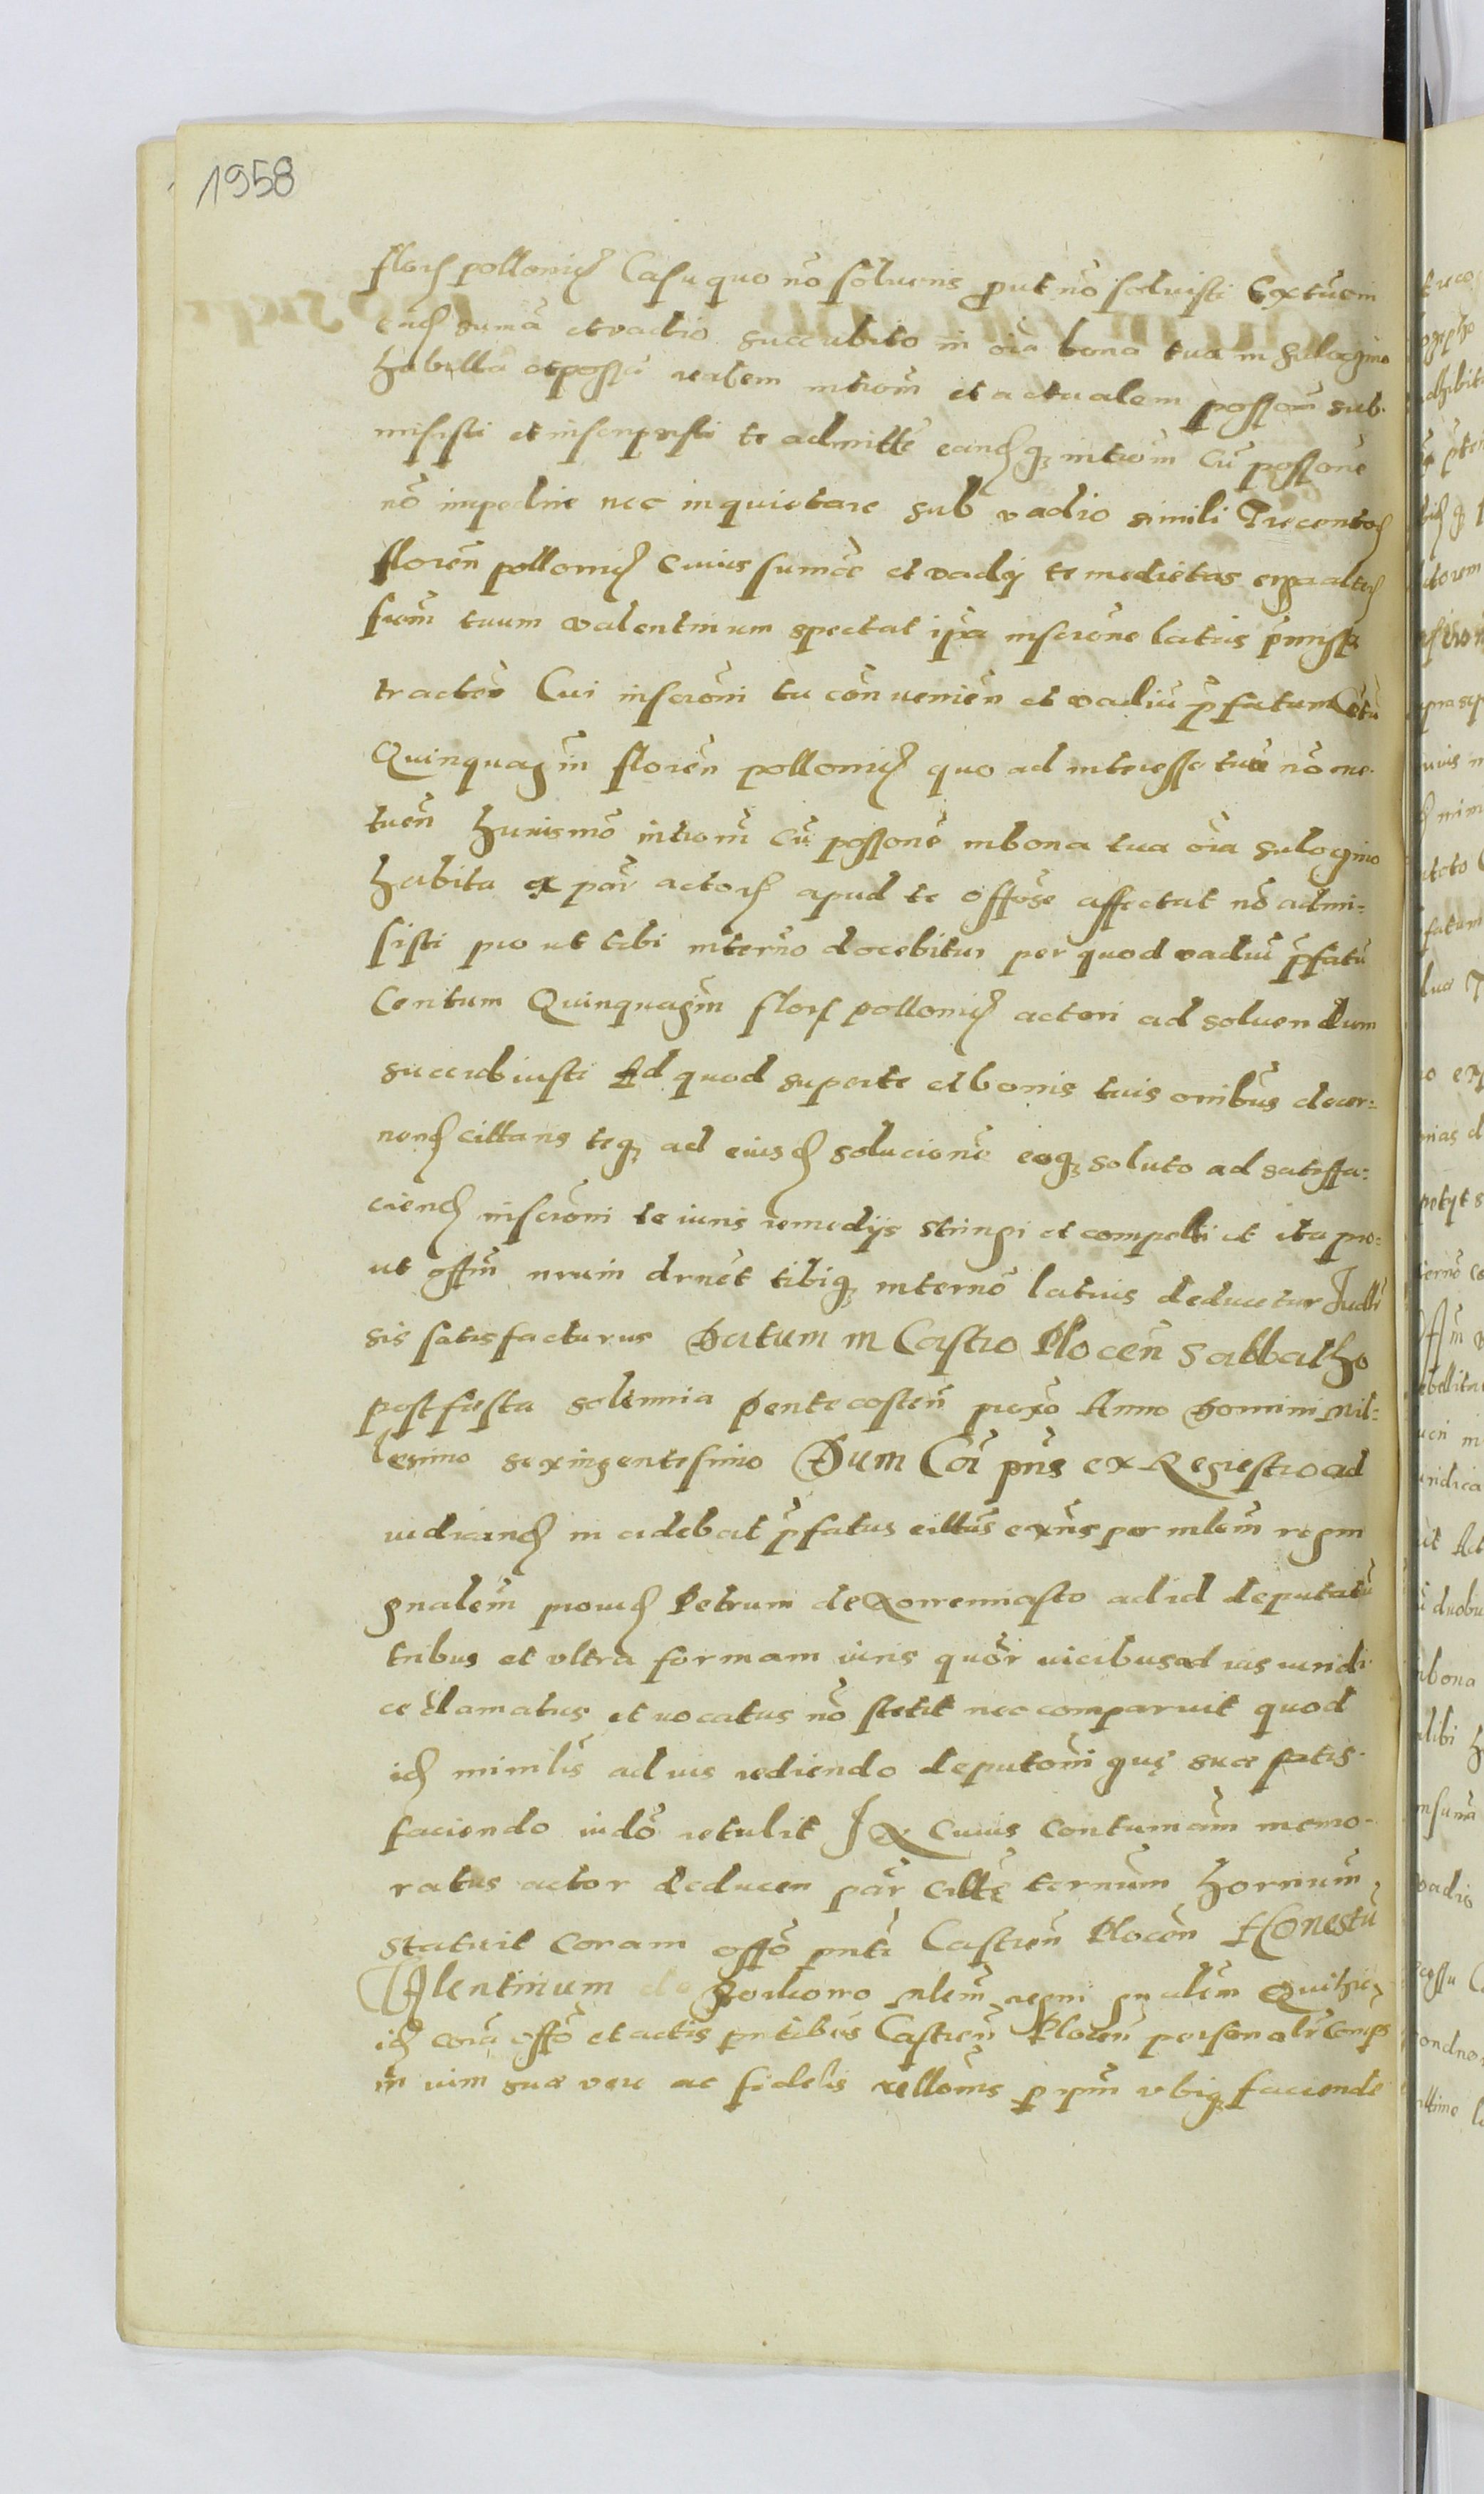 1958
flor pollonic Casu quo nō soluens put nō soluisti Extūem
end sumā et vadio succubito in oīa bona tua in Sulocgino
habilla et possa realem introm̄ et actualem posson̄ sub-
misisti et inscripsisti te admittē eandq intrōm cū possonē
nō impedire nec inquietare sub vadio simili Trecentor
floren̄ pollonic Cuius sum̄e et vadij te medietas erga alter
frōm tuum Valentinum spectat ip̄a inscrōne latius p̄miss
tracten̄ Cui inscrōni tu con̄uenien̄ et vadiū p̄fatum Cētū
Quinquagin̄ floren̄ pollonic quo ad interesse tuū nō me-
tuen̄ huiusmō introm̄ cū possonē in bona tua oīa Sulocgino
habita ex par̄ actor apud te offōse affectat nō admi-
sisti pro ut tibi intermō docebitur per quod vadiū p̄fatū
Centum Quinquagin̄ flor pollonic actori ad soluendum
succubuisti Ad quod super te et bonis tuis om̄ibus decer-
nend cittans teq ad eiusd solucionē eoq soluto ad satisfa-
ciend inscrōni te iuris remedijs stringi et compelli et ita pro-
ut offm̄ nrum drnet tibiq intermō latius deducetur Iudlī
sis satisfacturus Datum in Castro Plocen̄ Sabbatho
post festa solennia Pentecosten̄ proxō Anno Domini Mil-
lesimo sexingentesimo Dum Cōr pn̄s ex Regiestro ad
iudicand in cidebat p̄fatus cittus exn̄s per mlem̄ regni
gnalem̄ prouid Petrum de ad id deputatū
tribus et vltra formam iuris quōr vicibus ad ius iuridi
ce clamatus et vocatus nō stetit nec comparuit quod
id minīlis ad ius rediendo deputōni qus suæ satis-
faciendo iudō retulit In Cuius contumām memo-
ratus actor deducen par̄ cittē ternum̄ hornum̄
statuit coram offō pn̄ti Castren̄ Plocen̄ Honestū
Valentinum de mlem̄ regni gnalem̄ Qui hic
id corā offō et actis pn̄tibus Castren̄ Plocen̄ personalr comps
in vim suæ veræ ac fidelis rellōnis p ipm̄ vbiq faciende